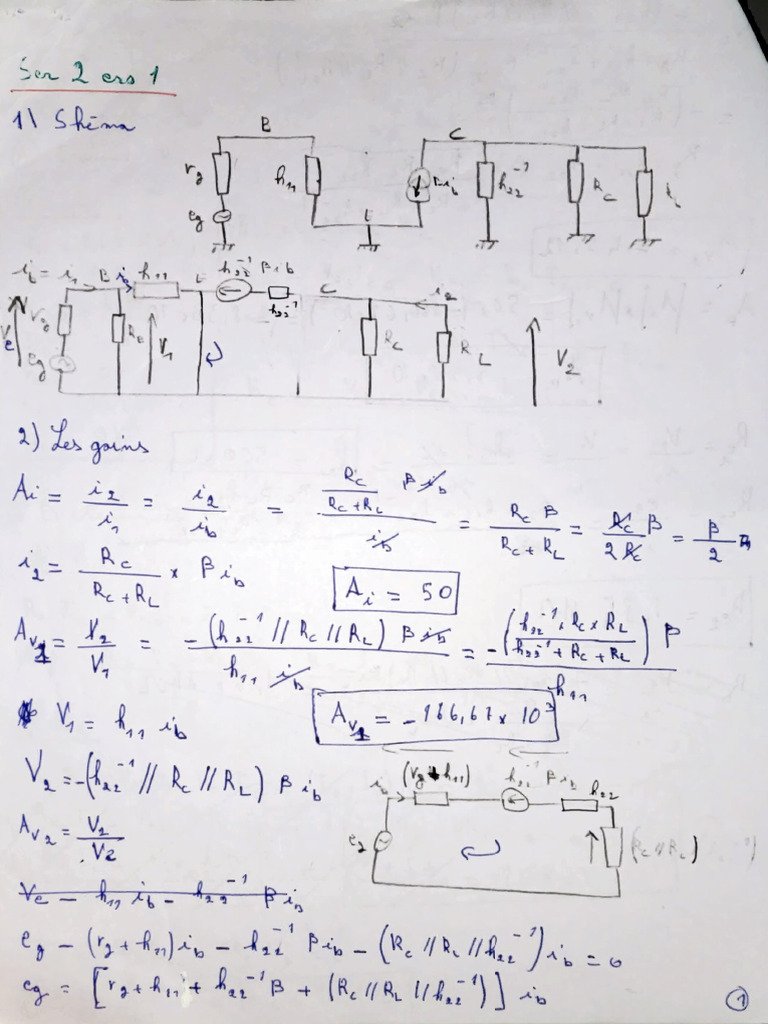 Ser 2 exo 1
1) Shéma
B C
rg h₁₁ βib h₂₂⁻¹ Rc RL
eg E
ib = i₁ B ib h₁₁ E h₂₂⁻¹ βib C i₂
h₂₂⁻¹
Ve rg RB V₁ Rc RL V₂
eg
2) Les gains
Ai = i₂/i₁ = i₂/ib = (Rc/(Rc+RL) β ib)/ib = Rc β/(Rc+RL) = Rc β/(2 Rc) = β/2
i₂ = Rc/(Rc+RL) × β ib
Ai = 50
Av₁ = V₂/V₁ = -(h₂₂⁻¹ // Rc // RL) β ib/(h₁₁ ib) = -((h₂₂⁻¹ × Rc × RL)/(h₂₂⁻¹ + Rc + RL)) β/h₁₁
V₁ = h₁₁ ib
Av₁ = -166,67 × 10³
V₂ = -(h₂₂⁻¹ // Rc // RL) β ib
ib (rg+h₁₁) h₂₂⁻¹ βib h₂₂
eg (Rc // RL)
Av₂ = V₂/Ve
Ve - h₁₁ ib - h₂₂⁻¹ β ib
eg - (rg + h₁₁) ib - h₂₂⁻¹ β ib - (Rc // RL // h₂₂⁻¹) ib = 0
eg = [rg + h₁₁ + h₂₂⁻¹ β + (Rc // RL // h₂₂⁻¹)] ib
1